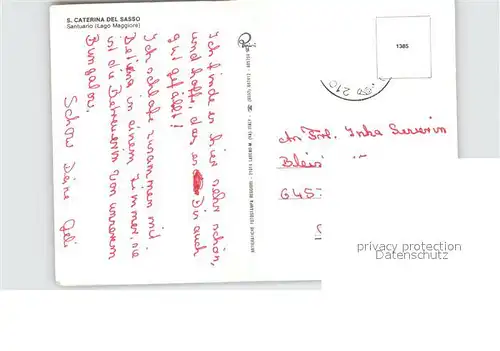 S. CATERINA DEL SASSO
Santuario (Lago Maggiore)
1385
Ich finde es hier sehr schön,
und hoffe, das es Dir auch
gut gefällt!
Ich schlafe zusammen mit
in einem Zimmer. sie
ist die Betreuerin von unserem
Bungalow.
Schöne Deine
An Frl. Inka Severin
645
privacy protection
Datenschutz